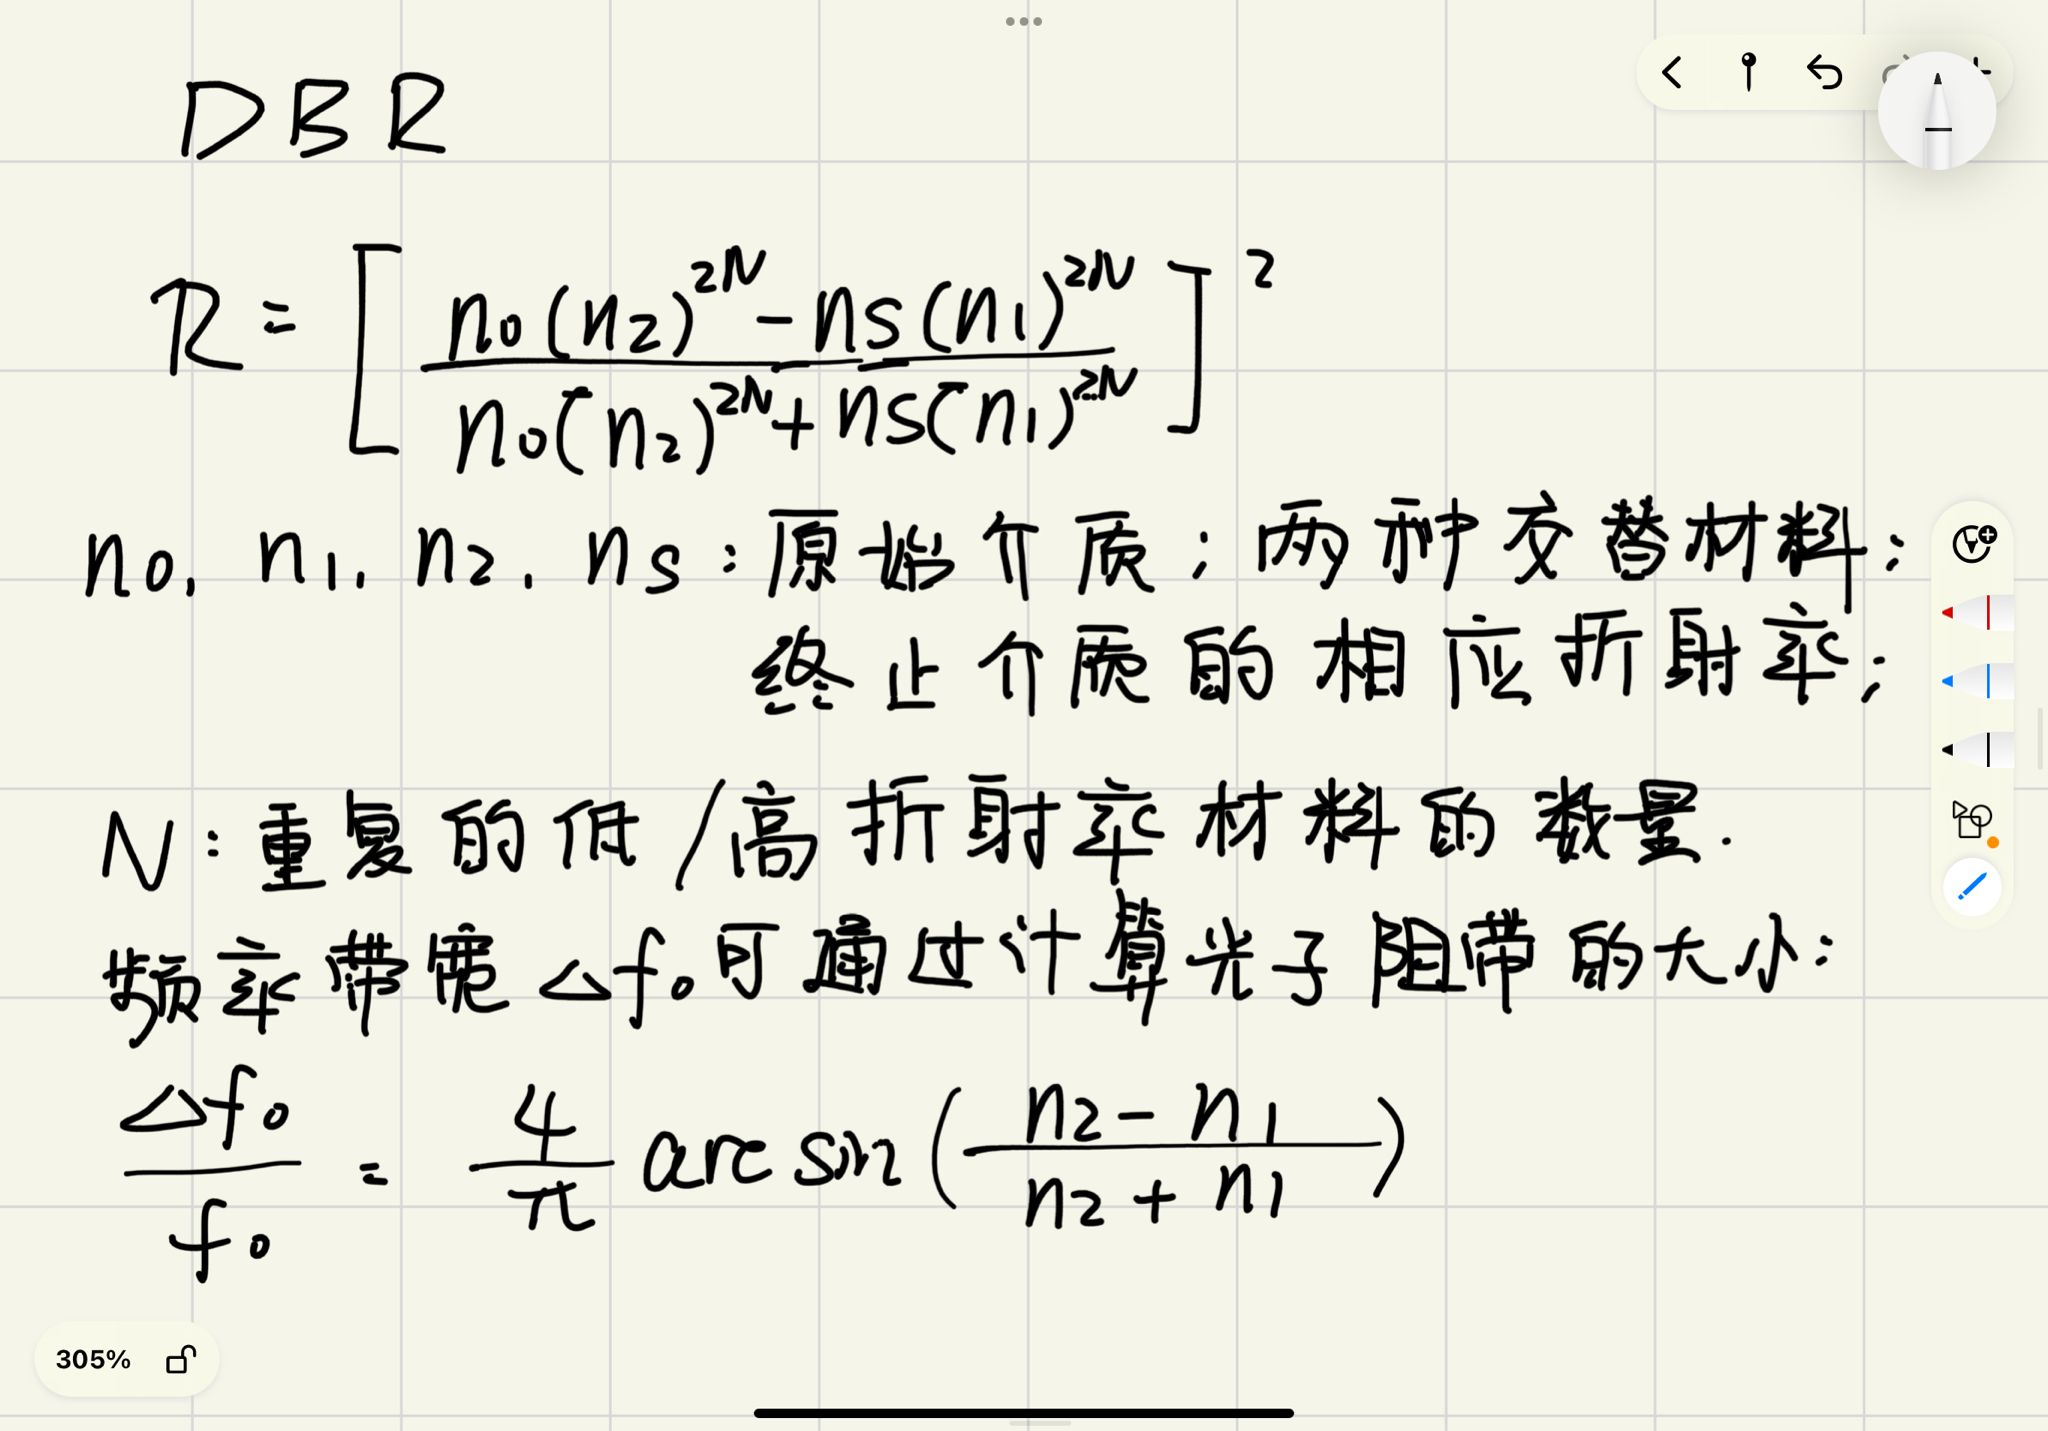 DBR
R = [ n0(n2)^2N - ns(n1)^2N / n0(n2)^2N + ns(n1)^2N ]^2
n0, n1, n2, ns：原始介质；两种交替材料；
终止介质的相应折射率；
N：重复的低/高折射率材料的数量.
频率带宽 △f0 可通过计算光子阻带的大小：
△f0 / f0 = 4/π arc sin ( n2 - n1 / n2 + n1 )
305%